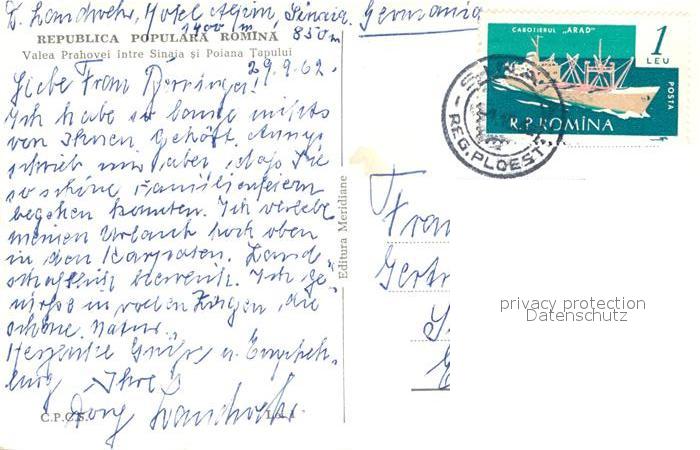 D. Landwehr, Hotel Alpin, Sinaia Germania
1400 m 850 m
REPUBLICA POPULARĂ ROMÎNĂ
Valea Prahovei între Sinaia și Poiana Țapului
29.9.62.
Liebe Frau
Ich habe so lange nichts
von Ihnen gehört. Annyi
schrieb mir aber, daß Sie
so schöne Familienfeiern
begehen konnten. Ich verlebe
meinen Urlaub hoch oben
in den Karpaten. Land-
schaftlich herrlich. Ich ge-
nieße in vollen Zügen die
schöne Natur.
Herzliche Grüße u. Empfeh-
lung Ihre
Landwehr
C.P.C.S. Lei 1
Editura Meridiane
CABOTIERUL „ARAD"
1
LEU
POSTA
R.P.ROMÎNA
REG. PLOESTI
Frau
Gertr
privacy protection
Datenschutz